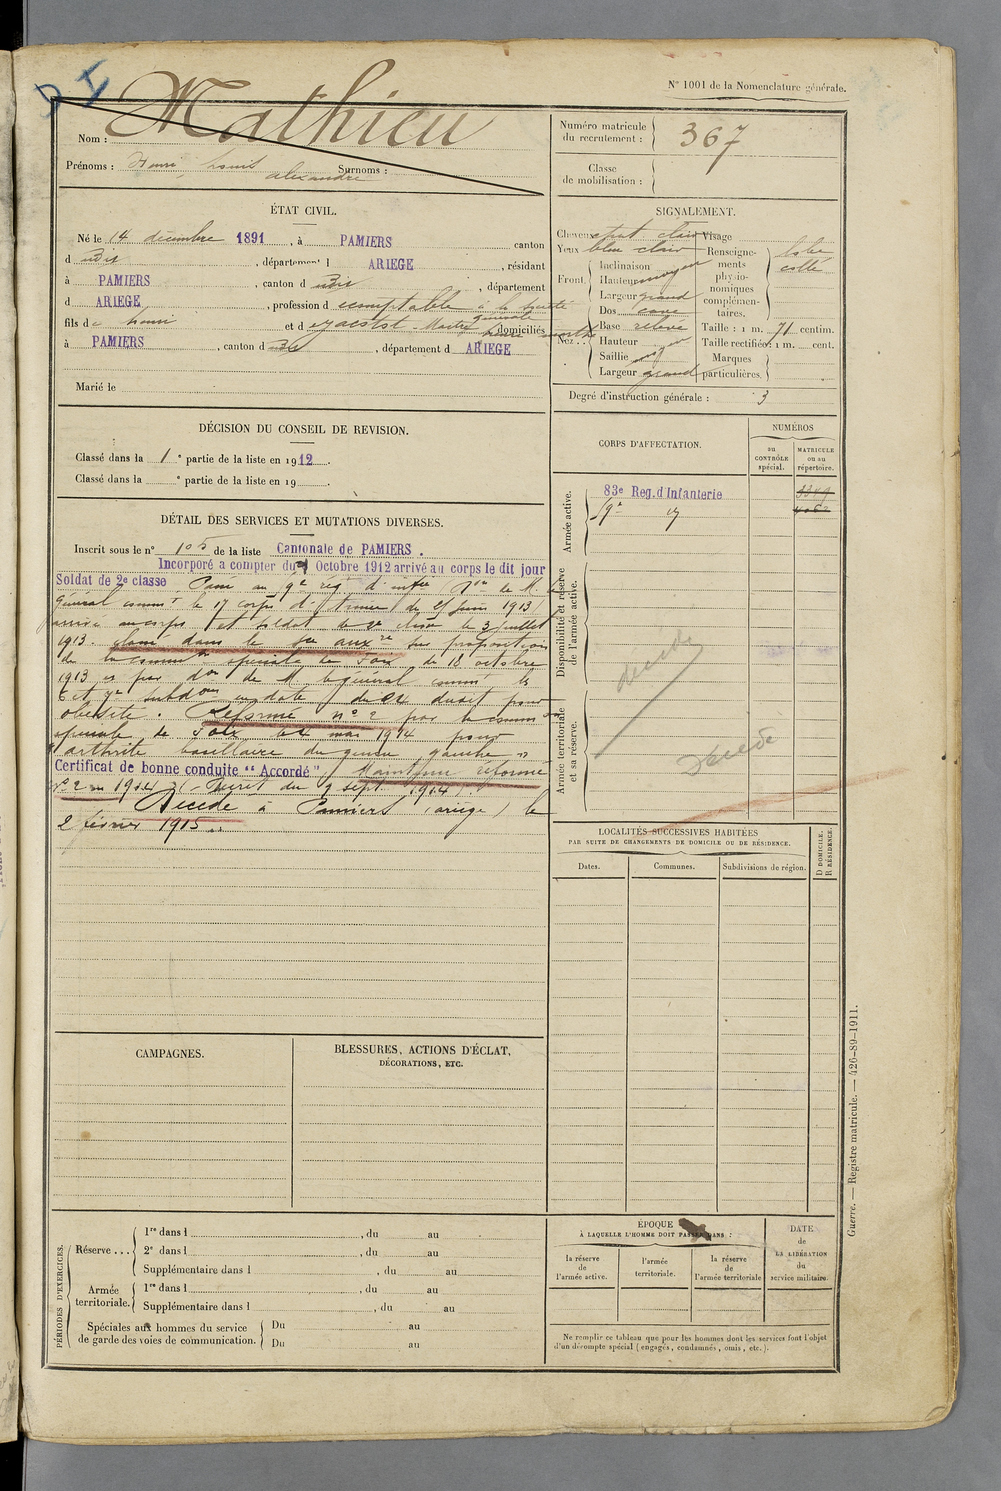 D I
N° 1001 de la Nomenclature générale.
Nom : Mathieu
Prénoms : Henri, Louis Surnoms :
alexandre
Numéro matricule
du recrutement : 367
Classe
de mobilisation :
ÉTAT CIVIL.
Né le 14 décembre 1891, à PAMIERS canton
d udit, département d ARIEGE, résidant
à PAMIERS, canton d udit, département
d ARIEGE, profession d comptable à la
générale
fils de henri et d domiciliés
à PAMIERS, canton d dit, département d ARIEGE
Marié le
SIGNALEMENT.
Cheveux chat clair Visage
Yeux bleu clair
Front
Inclinaison
Hauteur moyen
Largeur grand
Nez
Dos cave
Base relevé
Hauteur
Saillie
Largeur grand
Renseignements
physionomiques
complémentaires.
collé
Taille : 1 m. 71 centim.
Taille rectifiée : 1 m. cent.
Marques
particulières.
Degré d'instruction générale : 3
DÉCISION DU CONSEIL DE REVISION.
Classé dans la 1e partie de la liste en 1912.
Classé dans la e partie de la liste en 19 .
CORPS D'AFFECTATION.
NUMÉROS
au
CONTRÔLE
spécial.
MATRICULE
ou au
répertoire.
Armée active.
83e Reg. d'Infanterie
59e
Disponibilité et réserve
de l'armée active.
décédé
Armée territoriale
et sa réserve.
Décédé
DÉTAIL DES SERVICES ET MUTATIONS DIVERSES.
Inscrit sous le n° 105 de la liste Cantonale de PAMIERS.
Incorporé a compter du Octobre 1912 arrivé au corps le dit jour
Soldat de 2e classe Passé au 9e rég d'infie Don de M. le
Général commt le 17 corps d'Armée du 25 juin 1913
arrivé au corps et soldat de 2e classe le 3 juillet
1913. classé dans le sce auxre sur proposition
de la common spéciale de Foix du 18 octobre
1913 et par don de M le général commt les
subdons en date du dudit pour
obésité. Réformé n° 2 par la common
spéciale de Foix le 4 mai 1914 pour
"arthrite bacillaire du genou gauche"
Certificat de bonne conduite "Accordé" Maintenu réformé
n° 2 en 1914 (Décret du 9 sept. 1914).
Décédé à Pamiers (ariège) le
2 février 1915.
LOCALITÉS SUCCESSIVES HABITÉES
PAR SUITE DE CHANGEMENTS DE DOMICILE OU DE RÉSIDENCE.
Dates.
Communes.
Subdivisions de région.
D DOMICILE.
R RÉSIDENCE.
CAMPAGNES.
BLESSURES, ACTIONS D'ÉCLAT,
DÉCORATIONS, ETC.
PÉRIODES D'EXERCICES.
Réserve . . .
1re dans l , du au
2e dans l , du au
Supplémentaire dans l , du au
Armée
territoriale.
1re dans l , du au
Supplémentaire dans l , du au
Spéciales aux hommes du service
de garde des voies de communication.
Du au
Du au
ÉPOQUE
À LAQUELLE L'HOMME DOIT PASSER DANS :
la réserve
de
l'armée active.
l'armée
territoriale.
la réserve
de
l'armée territoriale
DATE
de
LA LIBÉRATION
du
service militaire.
Ne remplir ce tableau que pour les hommes dont les services font l'objet
d'un décompte spécial (engagés, condamnés, omis, etc.).
Guerre. — Registre matricule. — 426-89-1911.